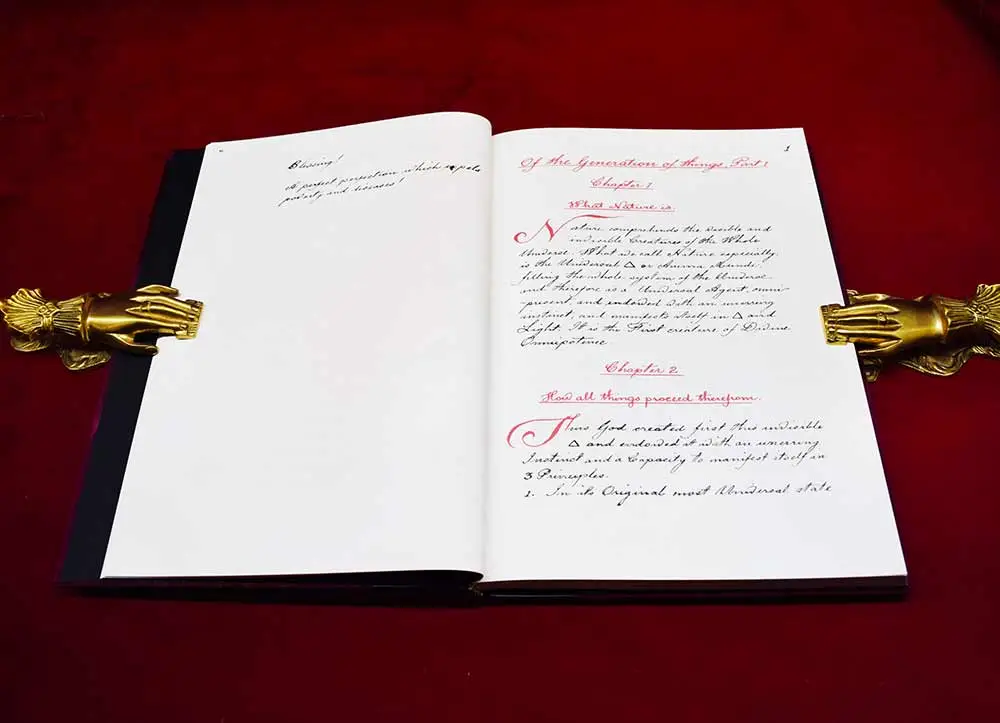 Blessing!
A perfect perfection which expels
poverty and diseases!
1
Of the Generation of things. Part 1
Chapter 1.
What Nature is.
Nature comprehends the visible and
invisible Creatures of the Whole
Universe. What we call Nature especially,
is the Universal △ or Anima Mundi,
filling the whole system of the Universe
and therefore is a Universal Agent, omni-
present, and endowed with an unerring
instinct, and manifests itself in △ and
Light. It is the First creature of Divine
Omnipotence
Chapter 2.
How all things proceed therefrom.
Thus God created first this invisible
△ and endowed it with an unerring
Instinct and a Capacity to manifest itself in
3 Principles.
1. In its Original most Universal state